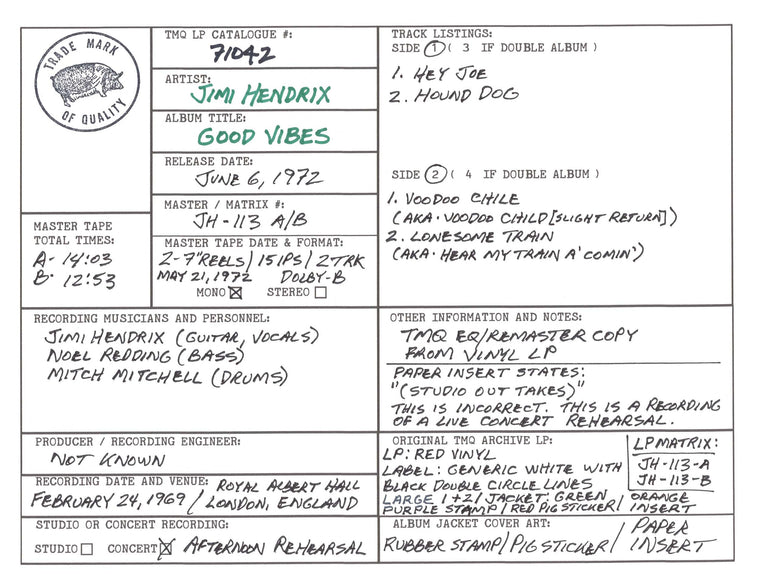 TRADE MARK
OF QUALITY
TMQ LP CATALOGUE #:
71042
ARTIST:
JIMI HENDRIX
ALBUM TITLE:
GOOD VIBES
RELEASE DATE:
JUNE 6, 1972
MASTER / MATRIX #:
JH-113 A/B
MASTER TAPE
TOTAL TIMES:
A- 14:03
B- 12:53
MASTER TAPE DATE & FORMAT:
2-7"REELS/15IPS/2TRK
MAY 21, 1972 DOLBY-B
MONO STEREO
TRACK LISTINGS:
SIDE 1 ( 3 IF DOUBLE ALBUM )
1. HEY JOE
2. HOUND DOG
SIDE 2 ( 4 IF DOUBLE ALBUM )
1. VOODOO CHILE
(AKA-VOODOO CHILD [SLIGHT RETURN])
2. LONESOME TRAIN
(AKA- HEAR MY TRAIN A' COMIN')
RECORDING MUSICIANS AND PERSONNEL:
JIMI HENDRIX (GUITAR, VOCALS)
NOEL REDDING (BASS)
MITCH MITCHELL (DRUMS)
OTHER INFORMATION AND NOTES:
TMQ EQ/REMASTER COPY
FROM VINYL LP
PAPER INSERT STATES:
"(STUDIO OUT TAKES)"
THIS IS INCORRECT. THIS IS A RECORDING
OF A LIVE CONCERT REHEARSAL.
PRODUCER / RECORDING ENGINEER:
NOT KNOWN
RECORDING DATE AND VENUE: ROYAL ALBERT HALL
FEBRUARY 24, 1969 / LONDON, ENGLAND
STUDIO OR CONCERT RECORDING:
STUDIO CONCERT AFTERNOON REHEARSAL
ORIGINAL TMQ ARCHIVE LP:
LP: RED VINYL
LABEL: GENERIC WHITE WITH
BLACK DOUBLE CIRCLE LINES
LARGE 1+2/JACKET: GREEN
PURPLE STAMP/RED PIG STICKER/ORANGE
INSERT
LP MATRIX:
JH-113-A
JH-113-B
ALBUM JACKET COVER ART:
RUBBER STAMP/PIG STICKER/PAPER
INSERT